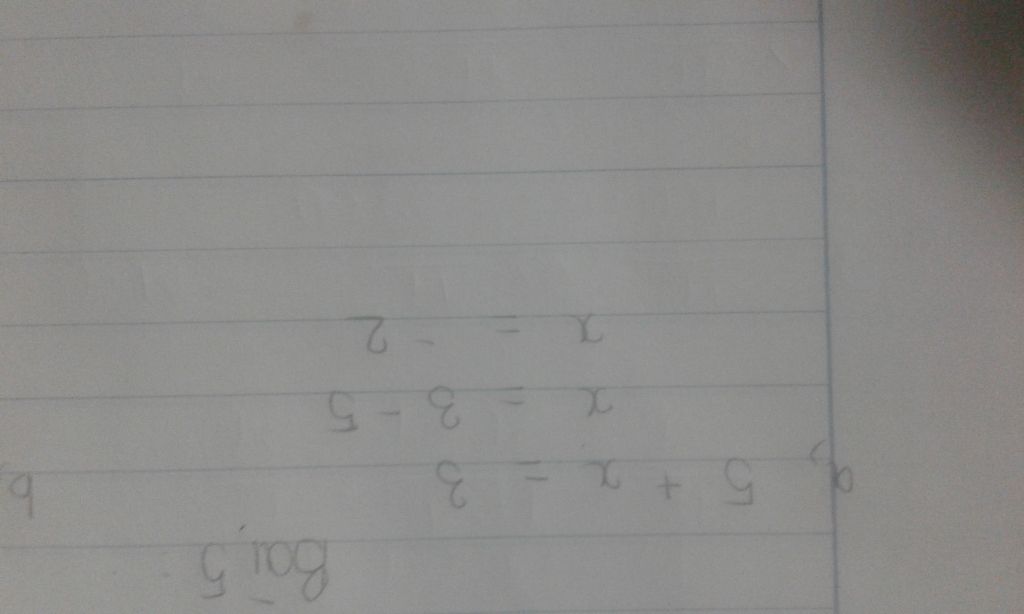 Bài 5
a, 5 + x = 3 b
x = 3 - 5
x = - 2